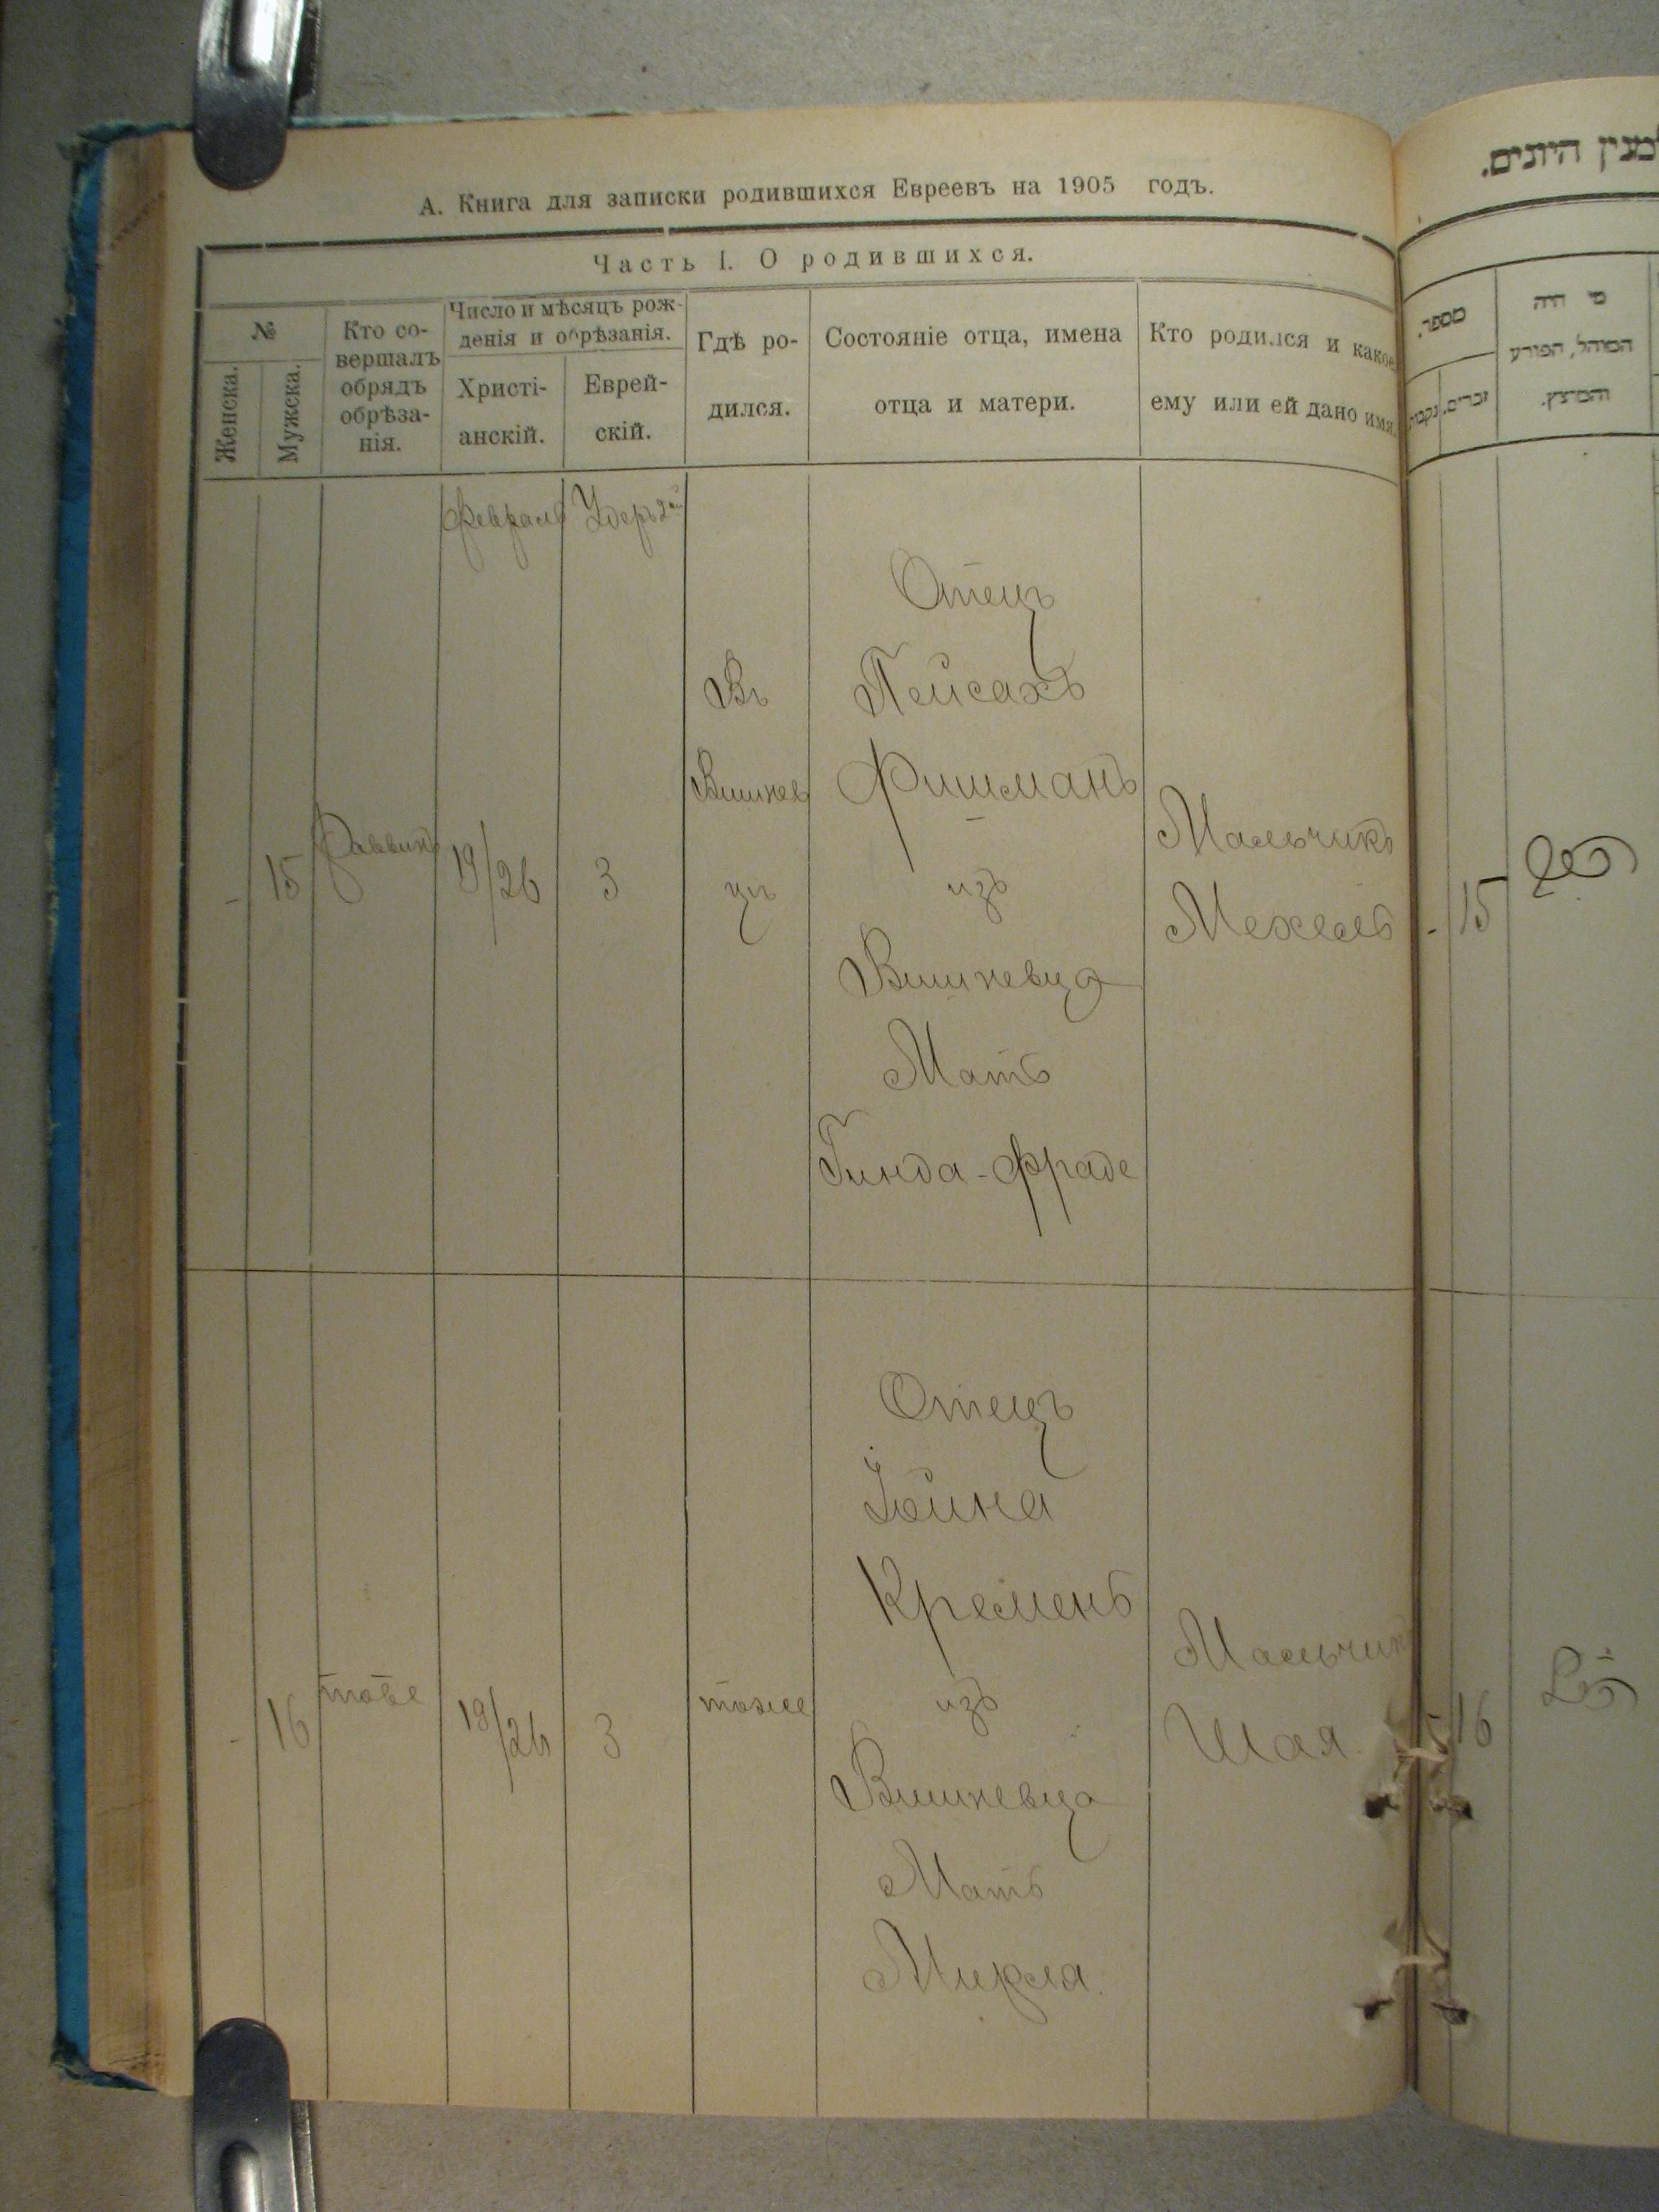 А. Книга для записки родившихся Евреевъ на 1905 годъ.
Часть I. О родившихся.
№
Женска.
Мужска.
Кто со-
вершалъ
обрядъ
обрѣза-
нія.
Число и мѣсяцъ рож-
денія и обрѣзанія.
Христі-
анскій.
Еврей-
скій.
Гдѣ ро-
дился.
Состояніе отца, имена
отца и матери.
Кто родился и какое
ему или ей дано имя.
Февраль
-
15
Раввинъ
19/26
3
Въ
Вишнев
цѣ
Отецъ
Пейсахъ
Фишманъ
изъ
Вишневца
Мать
Гинда-Фраде
Мальчикъ
Мехель
-
16
тоже
19/26
3
тоже
Отецъ
Іойна
Кремень
изъ
Вишневца
Мать
Мальчик
Шая.
למנין היהודים.
מספר.
זכרים.
מי היה
המוהל, הפורע
והמוצץ.
- 15
הרב
- 16